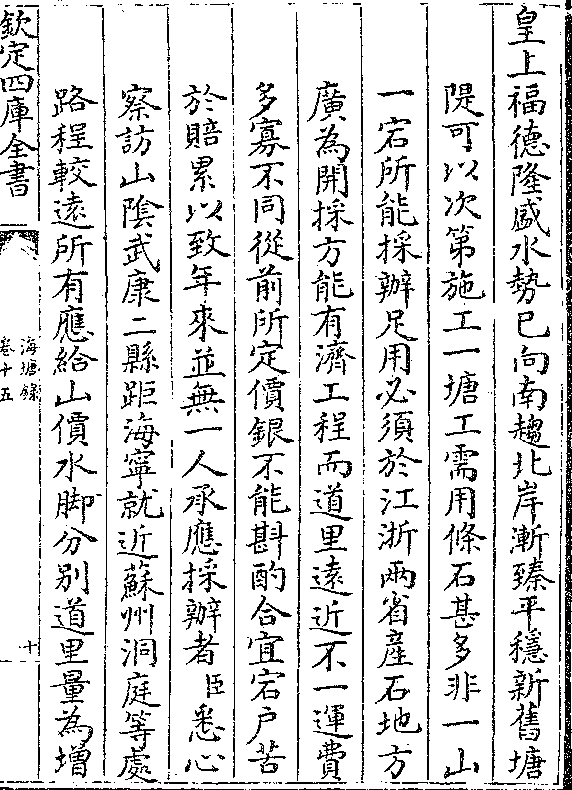 皇上福德隆盛水勢已向南趨北岸漸臻平穩新舊塘
隄可以次第施工一塘工需用條石甚多非一山
一宕所能採辦足用必須於江浙兩省產石地方
廣為開採方能有濟工程而道里遠近不一運費
多寡不同從前所定價銀不能斟酌合宜宕户苦
於賠累以致年來並無一人承應採辦者臣悉心
察訪山陰武康二縣距海寧就近蘇州洞庭等處
路程較遠所有應給山價水脚分别道里量為增
欽定四庫全書
海塘錄
卷十五
十